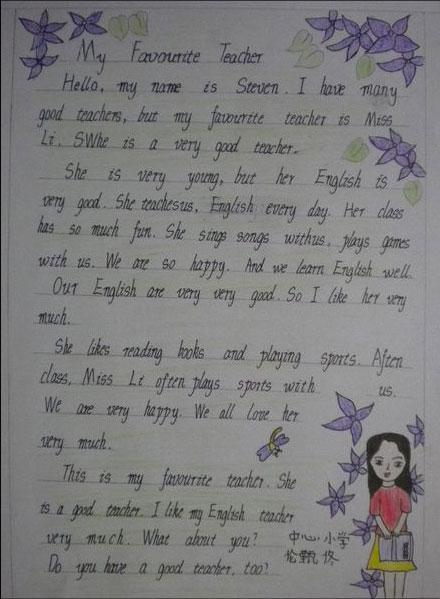 My Favourite Teacher
Hello, my name is Steven. I have many
good teachers, but my favourite teacher is Miss
Li. SWhe is a very good teacher.
She is very young, but her English is
very good. She teachesus, English every day. Her class
has so much fun. She sings songs withus, plays games
with us. We are so happy. And we learn English well.
Our English are very very good. So I like her very
much.
She likes reading books and playing sports. Aften
class, Miss Li often plays sports with us.
We are very happy. We all love her
very much.
This is my favourite teacher. She
is a good teacher. I like my English teacher
very much. What about you?
Do you have a good teacher, too?
中心小学
伦甄佟